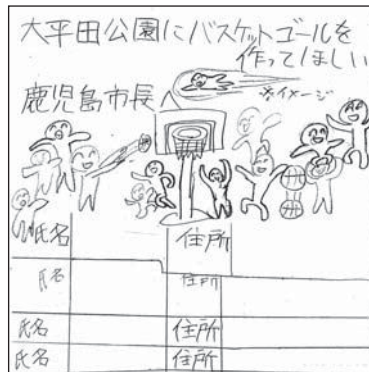 大平田公園にバスケットゴールを
作ってほしい
鹿児島市長へ
※イメージ
氏名 住所
氏名 住所
氏名 住所
氏名 住所